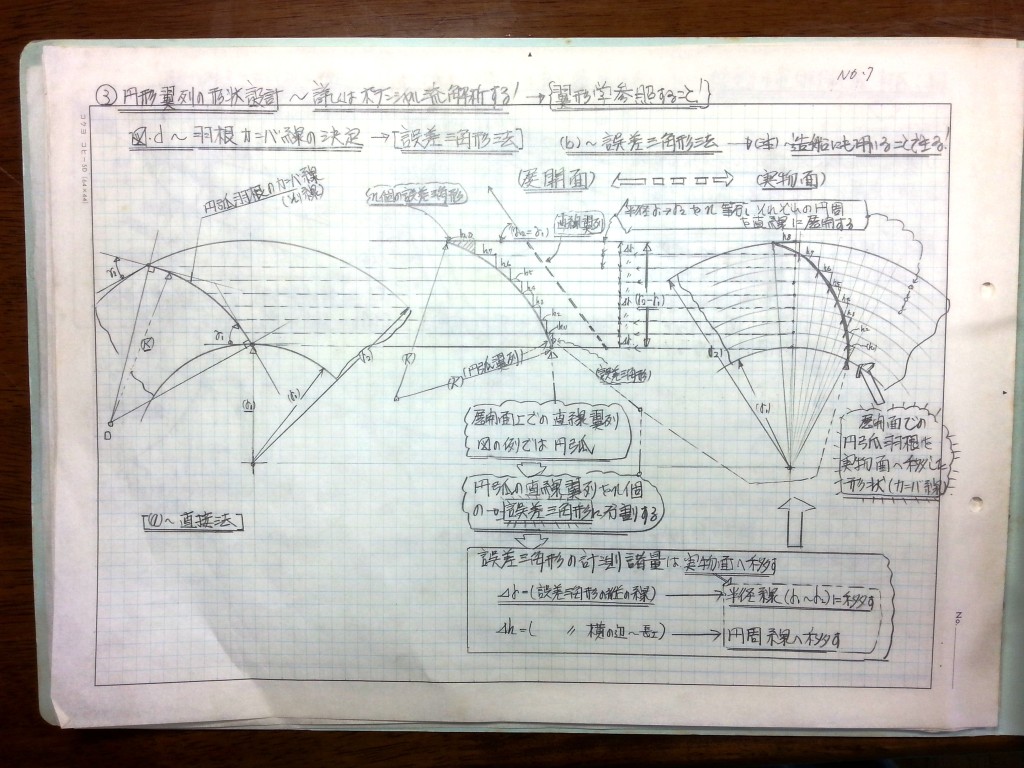 No.7
③ 円形翼列の形状設計 ~ 詳しくはポテンシャル流解析する! → {翼形学参照すること!}
図.d ~ 羽根カンバ線の決定 → [誤差三角形法]
(b) ~ 誤差三角形法 → (注) 造船にも用いることできる!
(展開面) (実物面)
円弧羽根のカンバ線
n個の誤差三角形
直線翼列
半径r₁→r₂をn等分し それぞれの円周を直線に展開する
(r₂-r₁)
(r₂)
(r₁)
R
(円弧翼列)
(誤差三角形)
展開面上での直線翼列
図の例では円弧
円弧の直線翼列をn個
の誤差三角形に分割する
展開面での
円弧羽根を
実物面へ移した
形状(カンバ線)
[(a) ~ 直接法]
誤差三角形の計測諸量は実物面へ移す
Δr=(誤差三角形の縦の線) → 半径線(r₁~r₂)に移す
Δh=( 〃 横の辺~長さ) → 円周線へ移す